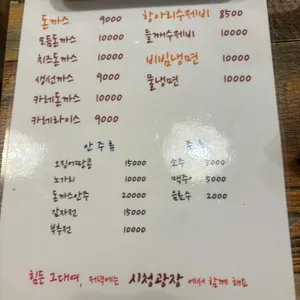 돈까스 9000
모듬돈까스 10000
치즈돈까스 10000
생선까스 9000
카레돈까스 10000
카레라이스 9000
항아리수제비 8500
들깨수제비 10000
비빔냉면 10000
물냉면 10000
안주류
오징어땅콩 15000
노가리 10000
돈까스안주 20000
감자전 15000
부추전 10000
주류
소주 5000
맥주 5000
음료수 2000
힘든 그대여, 저녁에는 시청광장에서 함께 해요